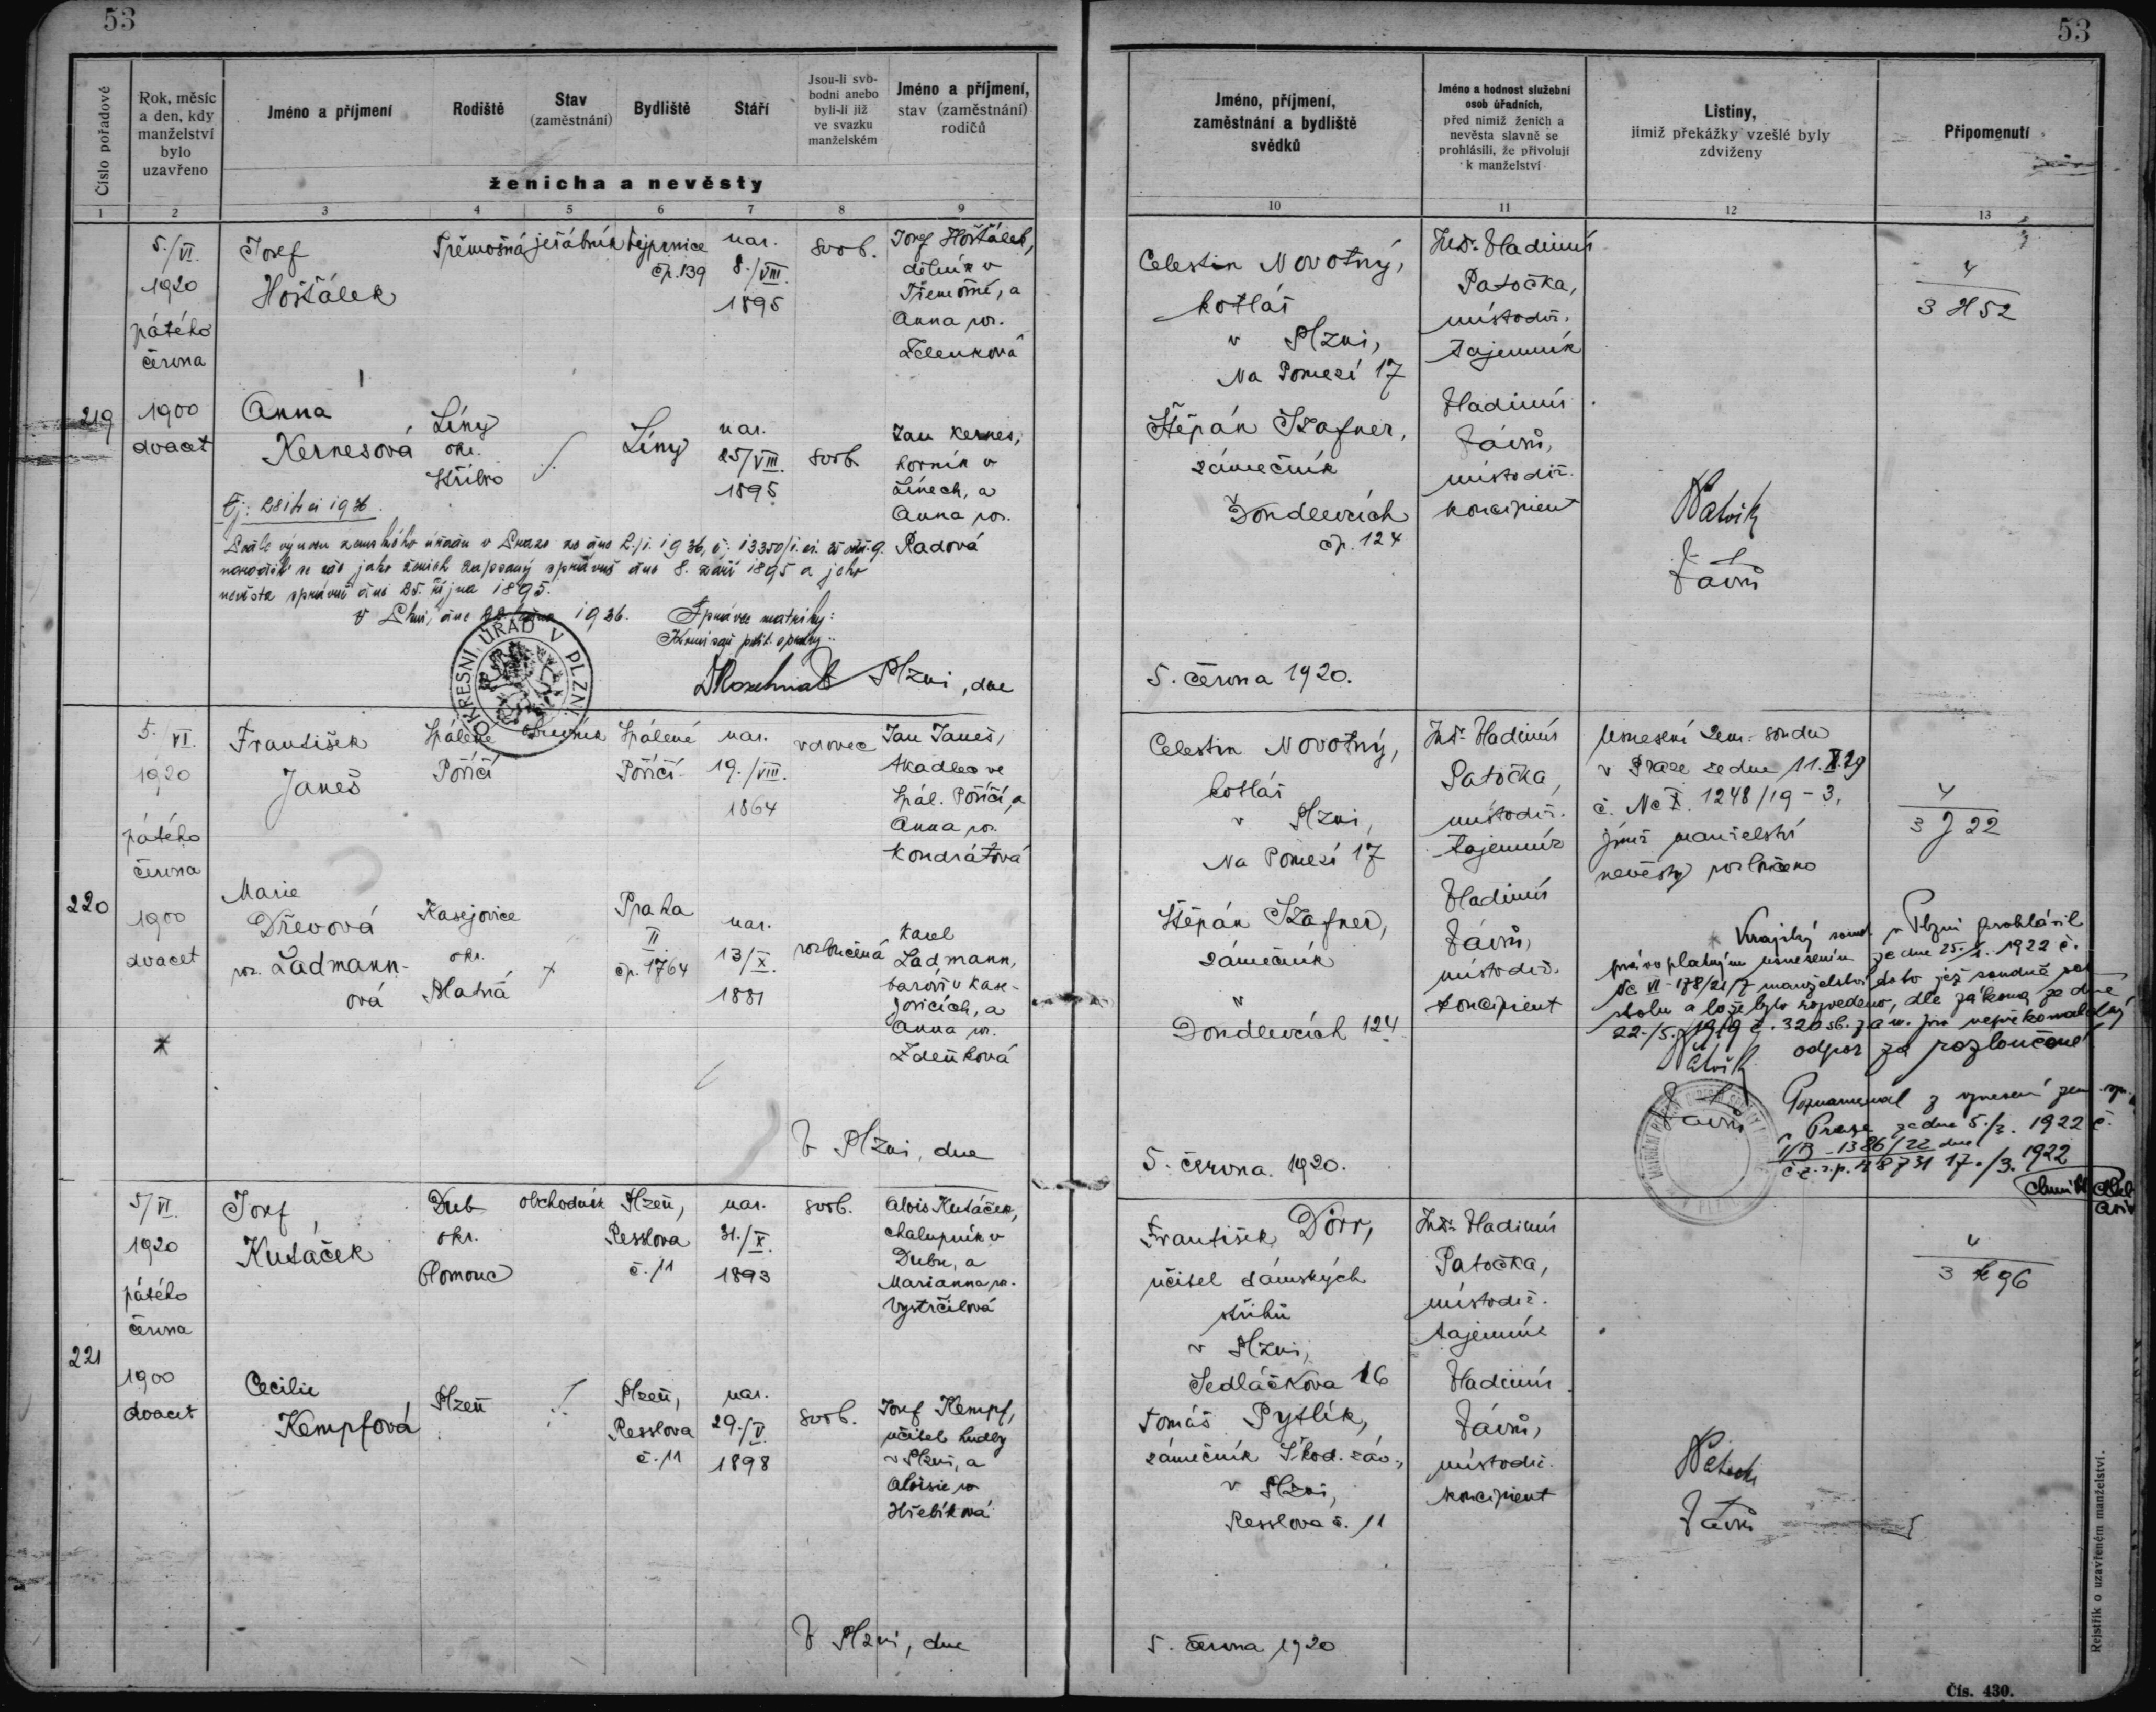 53
53
Číslo pořadové
Rok, měsíc
a den, kdy
manželství
bylo
uzavřeno
Jméno a příjmení
Rodiště
Stav
(zaměstnání)
Bydliště
Stáří
Jsou-li svo-
bodni anebo
byli-li již
ve svazku
manželském
Jméno a příjmení,
stav (zaměstnání)
rodičů
ženicha a nevěsty
Jméno, příjmení,
zaměstnání a bydliště
svědků
Jméno a hodnost služební
osob úřadních,
před nimiž ženich a
nevěsta slavně se
prohlásili, že přivolují
k manželství
Listiny,
jimiž překážky vzešlé byly
zdviženy
Připomenutí
1
2
3
4
5
6
7
8
9
10
11
12
13
219
5./VI.
1920
pátého
června
1900
dvacet
Josef
Hošťálek
Třemošná
jeřábník
Vejprnice
čp. 139
nar.
8./VIII.
1895
svob.
Josef Hošťálek,
dělník v
Třemošné, a
Anna roz.
Zelenková
Anna
Kernesová
Líny
okr.
Stříbro
Líny
nar.
25/VIII.
1895
svob.
Jan Kernes,
horník v
Línech, a
Anna roz.
Radová
1936.
Dále výnosu zemského úřadu v Praze ze dne 2./1. 1936, č. 13350/
narodil se jako ženich zapsaný správně dne 8. září 1895 a jeho
nevěsta správně dne 25. října 1895.
1936.
Správce matriky:
OKRESNÍ ÚŘAD V PLZNI
Plzni, dne
Celestin Novotný,
kotlář
v Plzni,
Na Pomezí 17
Štěpán Szafner,
zámečník
Dondlevcích
čp. 124
JUDr. Vladimír
Patočka,
místodrž.
tajemník
Vladimír
Závrš,
místodrž.
koncipient
4
3 H 52
5. června 1920.
220
5./VI.
1920
pátého
června
1900
dvacet
František
Janeš
Spálené
Poříčí
Spálené
Poříčí
nar.
19./VIII.
1864
vdovec
Jan Janeš,
tkadlec ve
Spál. Poříčí, a
Anna roz.
Kondrátová
Marie
Dřevová
roz. Ladmann-
ová
Kasejovice
okr.
Blatná
Praha
II.
čp. 1764
nar.
13/X.
1881
rozloučená
Karel
Ladmann,
barvíř v Kase-
jovicích, a
Anna roz.
Zdeňková
V Plzni, dne
Celestin Novotný,
kotlář
v Plzni,
Na Pomezí 17
Štěpán Szafner,
zámečník
v
Dondlevcích 124
JUDr. Vladimír
Patočka,
místodrž.
tajemník
Vladimír
Závrš,
místodrž.
koncipient
Usnesení zem. soudu
v Praze ze dne 11.X.19
č. Nc X. 1248/19 – 3,
jímž manželství
nevěsty rozloučeno
4
3 J 22
Krajský soud v Plzni prohlásil
právoplatným usnesením ze dne 25./1. 1922 č.
Nc VI - 178/21/7 manželství toto jež soudně od
stolu a lože bylo rozvedeno, dle zákona ze dne
22./5. 1919 č. 320 sb. z. a n. pro nepřekonatelný
odpor za rozloučené
Poznamenal z vynesení zem. spr.
v Praze ze dne 5./3. 1922 č.
1386/22 dne
48731 17./3. 1922
5. června 1920.
221
5/VI.
1920
pátého
června
1900
dvacet
Josef
Kutáček
Dub
okr.
Olomouc
obchodník
Plzeň,
Resslova
č. 11
nar.
31./X.
1893
svob.
Alois Kutáček,
chalupník v
Dubu, a
Marianna roz.
Vystrčilová
Cecilie
Kempfová
Plzeň
Plzeň,
Resslova
č. 11
nar.
29./V.
1898
svob.
Josef Kempf,
učitel hudby
v Plzni, a
Aloisie roz.
Hřebíková
V Plzni, dne
František Dörr,
učitel dámských
střihů
v Plzni,
Sedláčkova 16
Tomáš Pytlík,
zámečník Škod. záv.,
v Plzni,
Resslova č. 11
JUDr. Vladimír
Patočka,
místodrž.
tajemník
Vladimír
Závrš,
místodrž.
koncipient
4
3 K 96
5. června 1920
Rejstřík o uzavřeném manželství.
Čís. 430.